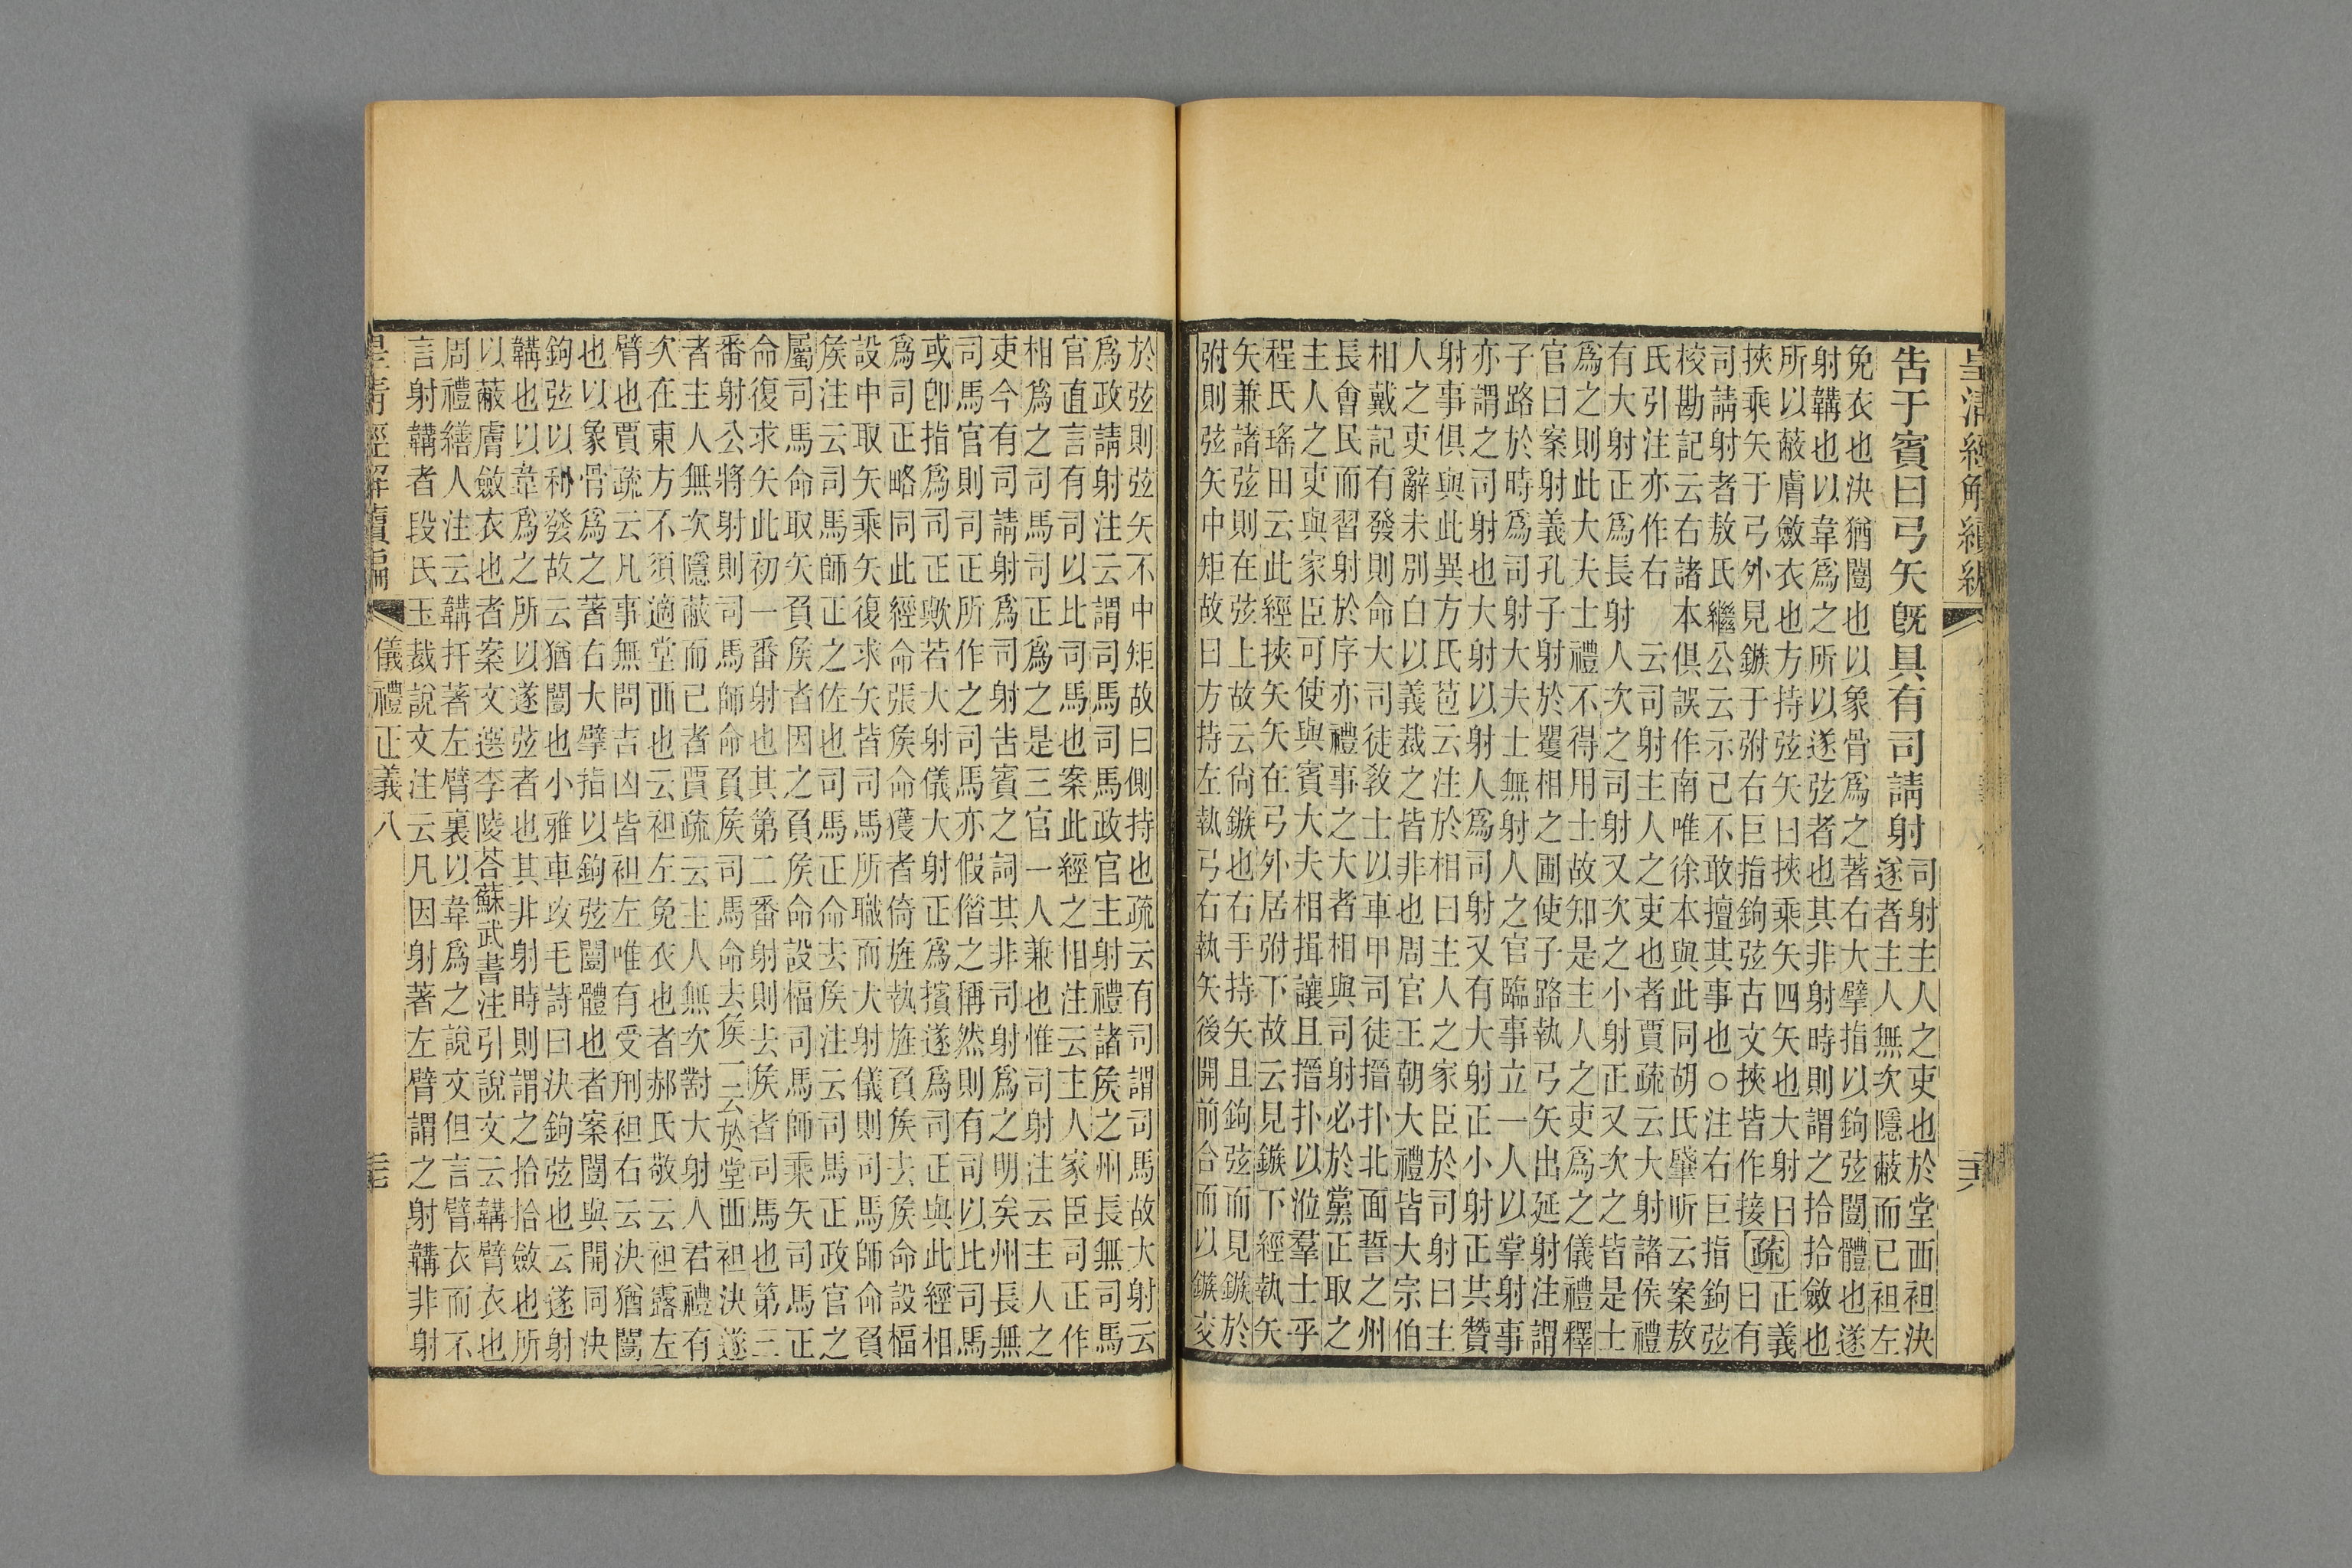 皇清經解續編
告于賓曰弓矢旣具有司請射
司射主人之吏也於堂西袒決
遂者主人無次隱蔽而已袒左
免衣也決猶闓也以象骨爲之著右大擘指以鉤弦闓體也遂
射韝也以韋爲之所以遂弦者也其非射時則謂之拾拾斂也
所以蔽膚斂衣也方持弦矢曰挾乘矢四矢也大射曰正義
挾乘矢于弓外見鏃于弣右巨指鉤弦古文挾皆作接疏曰有
司請射者敖氏繼公云示己不敢擅其事也○注右巨指鉤弦
校勘記云右諸本俱誤作南唯徐本與此同胡氏肇昕云案敖
氏引注亦作右 云司射主人之吏也者賈疏云大射諸侯禮
有大射正爲長射人次之司射又次之小射正又次之皆是士
爲之則此大夫士禮不得用士故知是主人之吏爲之儀禮釋
官曰案射義孔子射於矍相之圃使子路執弓矢出延射注謂
子路於時爲司射大夫士無射人之官臨事立一人以掌射事
亦謂之司射也大射以射人爲司射又有大射正小射正共贊
射事俱與此異方氏苞云注於相曰主人之家臣於司射曰主
人之吏辭未別白以義裁之皆非也周官王朝大禮皆大宗伯
相戴記有發則命大司徒敎士以車甲司徒搢扑北面誓之州
長會民而習射於序亦禮事之大者相與司射必於黨正取之
主人之吏與家臣可使與賓大夫相揖讓且搢扑以涖羣士乎
程氏瑤田云此經挾矢矢在弓外居弣下故云見鏃下經執矢
矢兼諸弦則在弦上故云尙鏃也右手持矢且鉤弦而見鏃於
弣則弦矢中矩故曰方持左執弓右執矢後開前合而以鏃交
於弦則弦矢不中矩故曰側持也疏云有司謂司馬故大射云
爲政請射注云謂司馬司馬政官主射禮諸矦之州長無司馬
官直言有司以比司馬也案此經之相注云主人家臣司正作
相爲之司馬司正爲之是三官一人兼也惟司射注云主人之
吏今有司請射爲司射告賓之詞其非司射爲之明矣州長無
司馬官則司正所作之司馬亦假偕之稱然則有司以比司馬
或卽指爲司正歟若大射儀大射正爲擯遂爲司正與此經相
爲司正略同此經命張矦命獲者倚旌執旌負矦去矦命設楅
設中取矢乘矢復求矢皆司馬所職而大射儀則司馬師命負
矦注云司馬師正之佐也司馬正命去矦注云司馬正政官之
屬司馬命取矢負矦者因之負矦命設楅司馬師乘矢司馬正
命復求矢此初一番射也其第二番射則去矦者司馬也第三
番射公將射則司馬師命負矦司馬命去矦一云於堂西袒決遂
者主人無次隱蔽而已者賈疏云主人無次對大射人君禮有
次在東方不須適堂西也云袒左免衣也者郝氏敬云袒露左
臂也賈疏云凡事無問吉凶皆袒左唯有受刑袒右云決猶闓
也以象骨爲之著右大擘指以鉤弦闓體也者案闓與開同決
鉤弦以利發故云猶闓也小雅車攻毛詩曰決鉤弦也云遂射
韝也以韋爲之所以遂弦者也其非射時則謂之拾拾斂也所
以蔽膚斂衣也者案文選李陵荅蘇武書注引說文云韝臂衣也
周禮繕人注云韝扞著左臂裏以韋爲之說文但言臂衣而不
言射韝者段氏玉裁說文注云凡因射著左臂謂之射韝非射
皇清經解續編 儀禮正義八